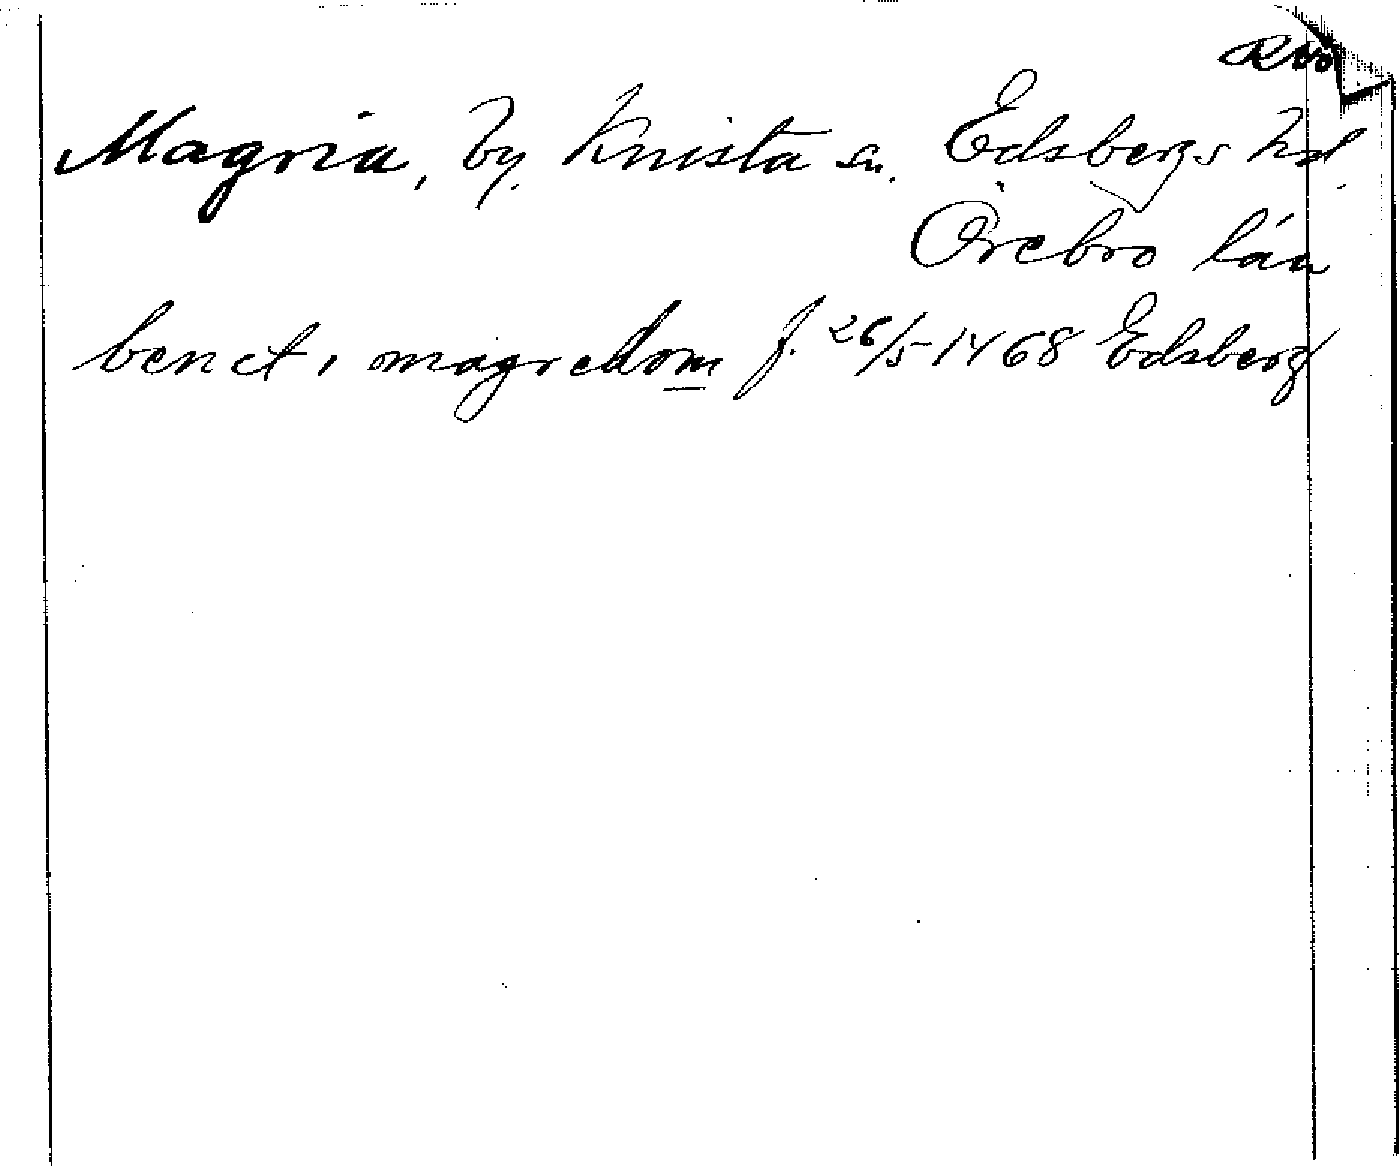 Magria, by, Knista sn. Edsbergs hd.
Örebro län
benct i magredom f. 26/5 1468 Edsberg